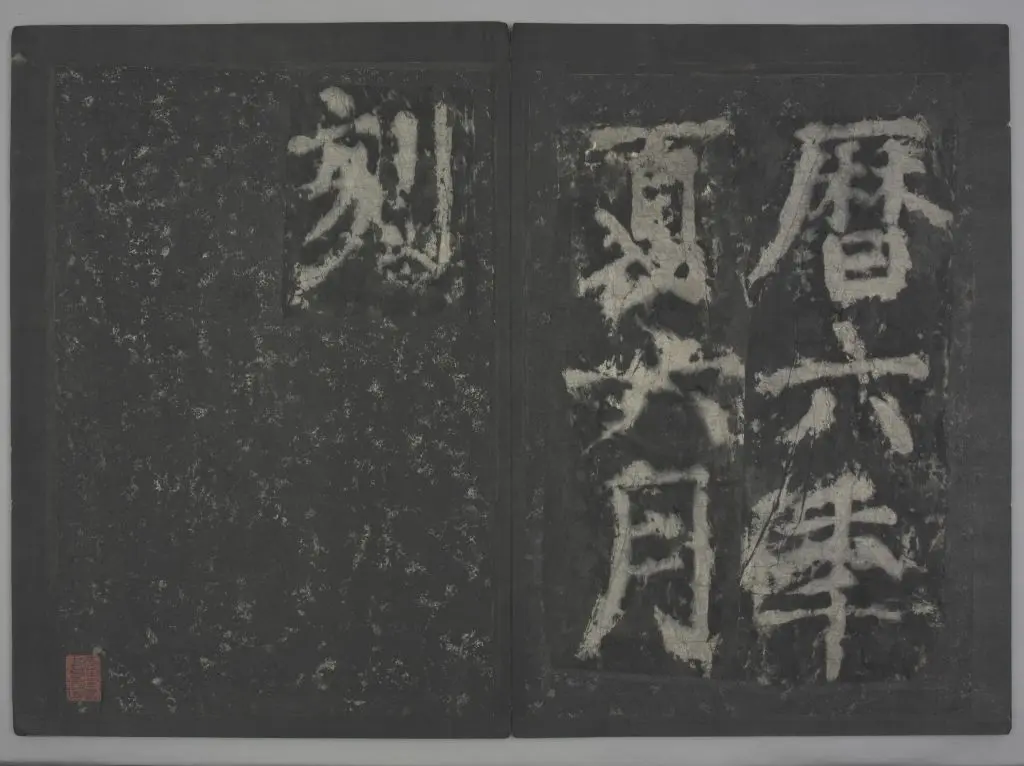 暦六年
夏六月
刻